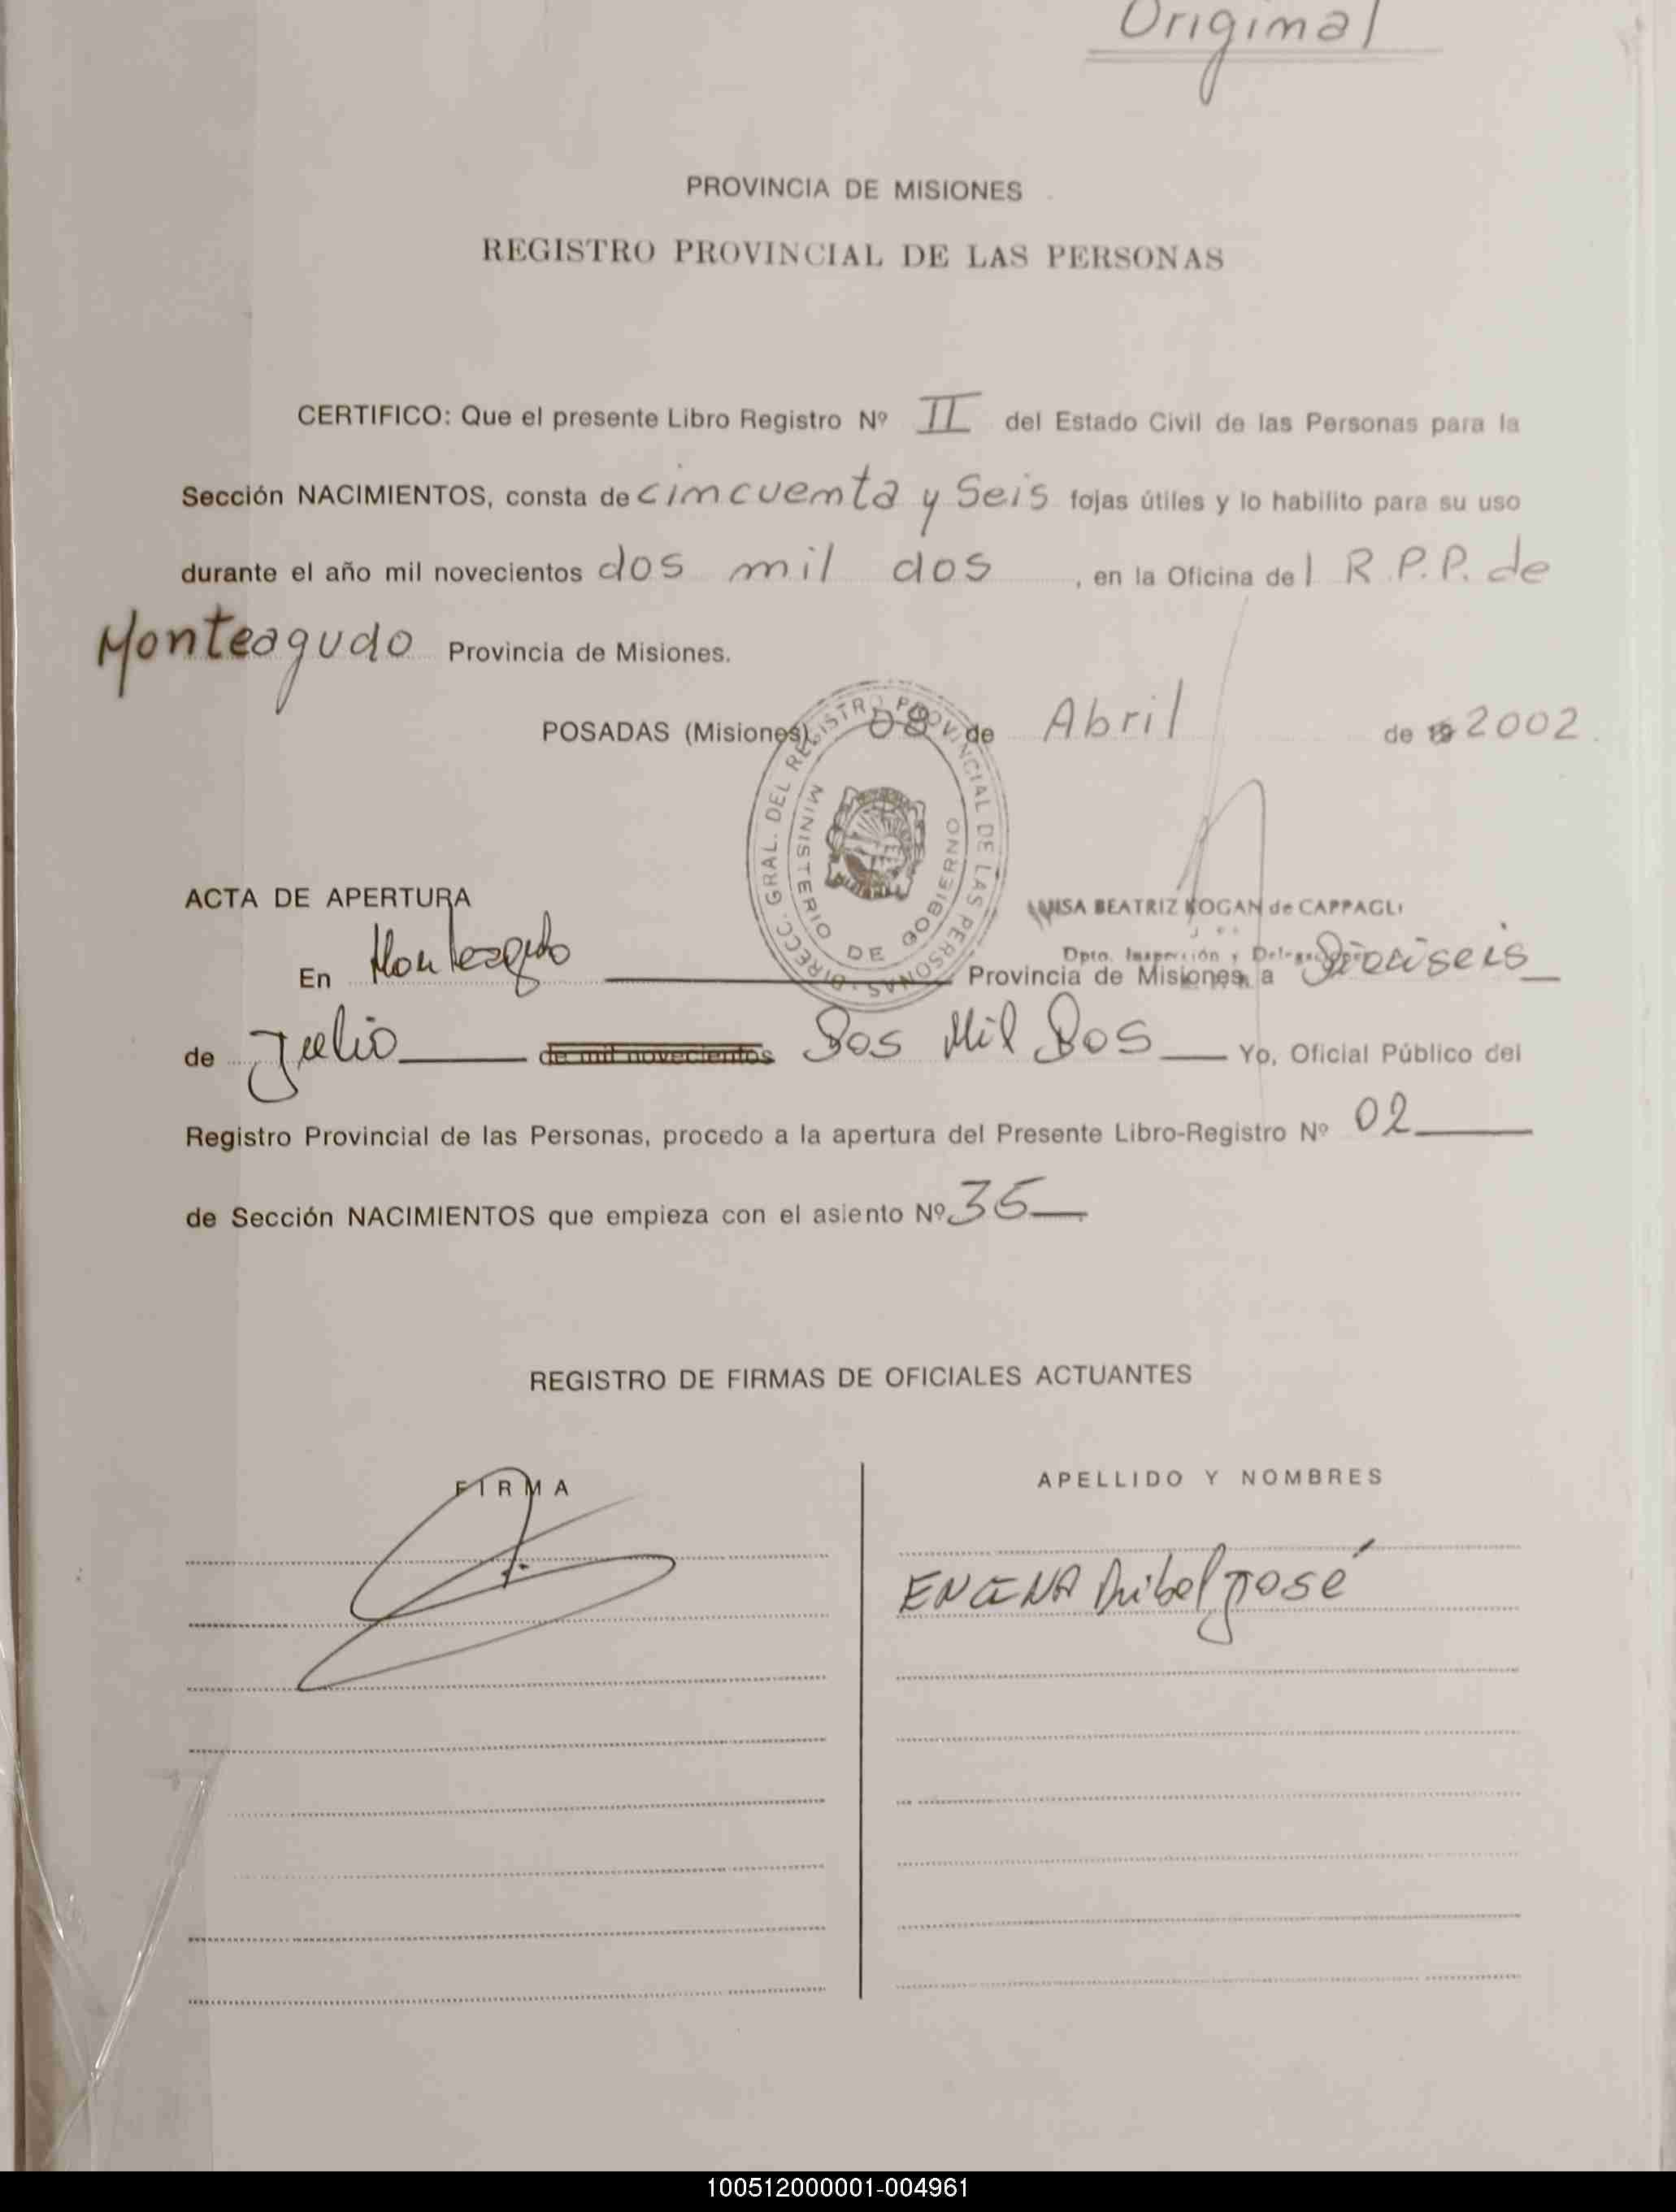 Original
PROVINCIA DE MISIONES
REGISTRO PROVINCIAL DE LAS PERSONAS
CERTIFICO: Que el presente Libro Registro Nº II del Estado Civil de las Personas para la
Sección NACIMIENTOS, consta de cincuenta y Seis fojas útiles y lo habilito para su uso
durante el año mil novecientos dos mil dos , en la Oficina del R.P.P. de
Monteagudo Provincia de Misiones.
POSADAS (Misiones) 08 de Abril de 19 2002.
DIRECC. GRAL. DEL REGISTRO PROVINCIAL DE LAS PERSONAS
MINISTERIO DE GOBIERNO
LUISA BEATRIZ KOGAN de CAPPAGLI
Dpto. Inspección y
ACTA DE APERTURA
En Monteagudo Provincia de Misiones, a Dieciseis
de Julio de mil novecientos Dos Mil Dos Yo, Oficial Público del
Registro Provincial de las Personas, procedo a la apertura del Presente Libro-Registro Nº 02
de Sección NACIMIENTOS que empieza con el asiento Nº 35
REGISTRO DE FIRMAS DE OFICIALES ACTUANTES
FIRMA
APELLIDO Y NOMBRES
José
100512000001-004961